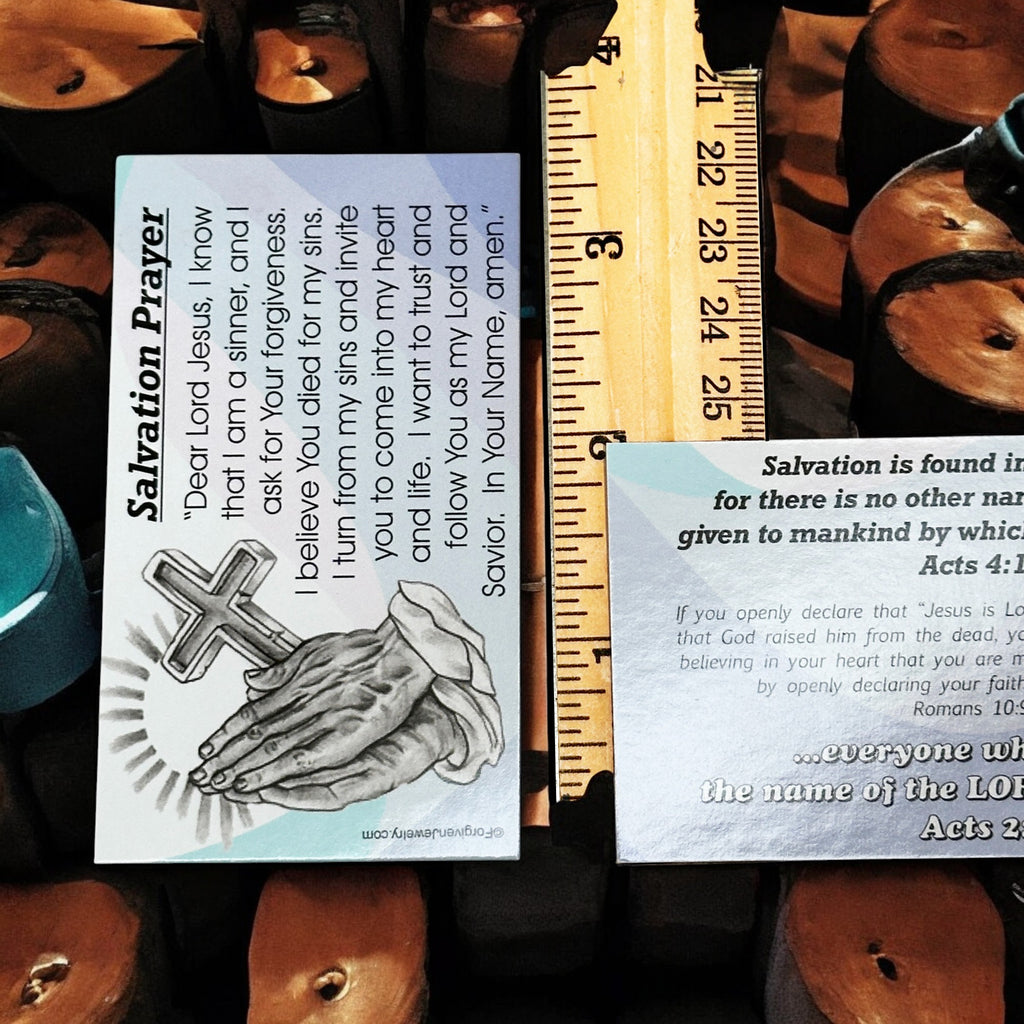 Salvation Prayer
"Dear Lord Jesus, I know
that I am a sinner, and I
ask for Your forgiveness.
I believe You died for my sins.
I turn from my sins and invite
you to come into my heart
and life. I want to trust and
follow You as my Lord and
Savior. In Your Name, amen."
©ForgivenJewelry.com
4
3
2
1
21
22
23
24
25
Salvation is found in
for there is no other
given to mankind by
Acts
If you openly declare that "Jesus is
that God raised him from the dead,
believing in your heart that you are
by openly declaring your faith
Romans 10:9
...everyone
the name of the
Acts